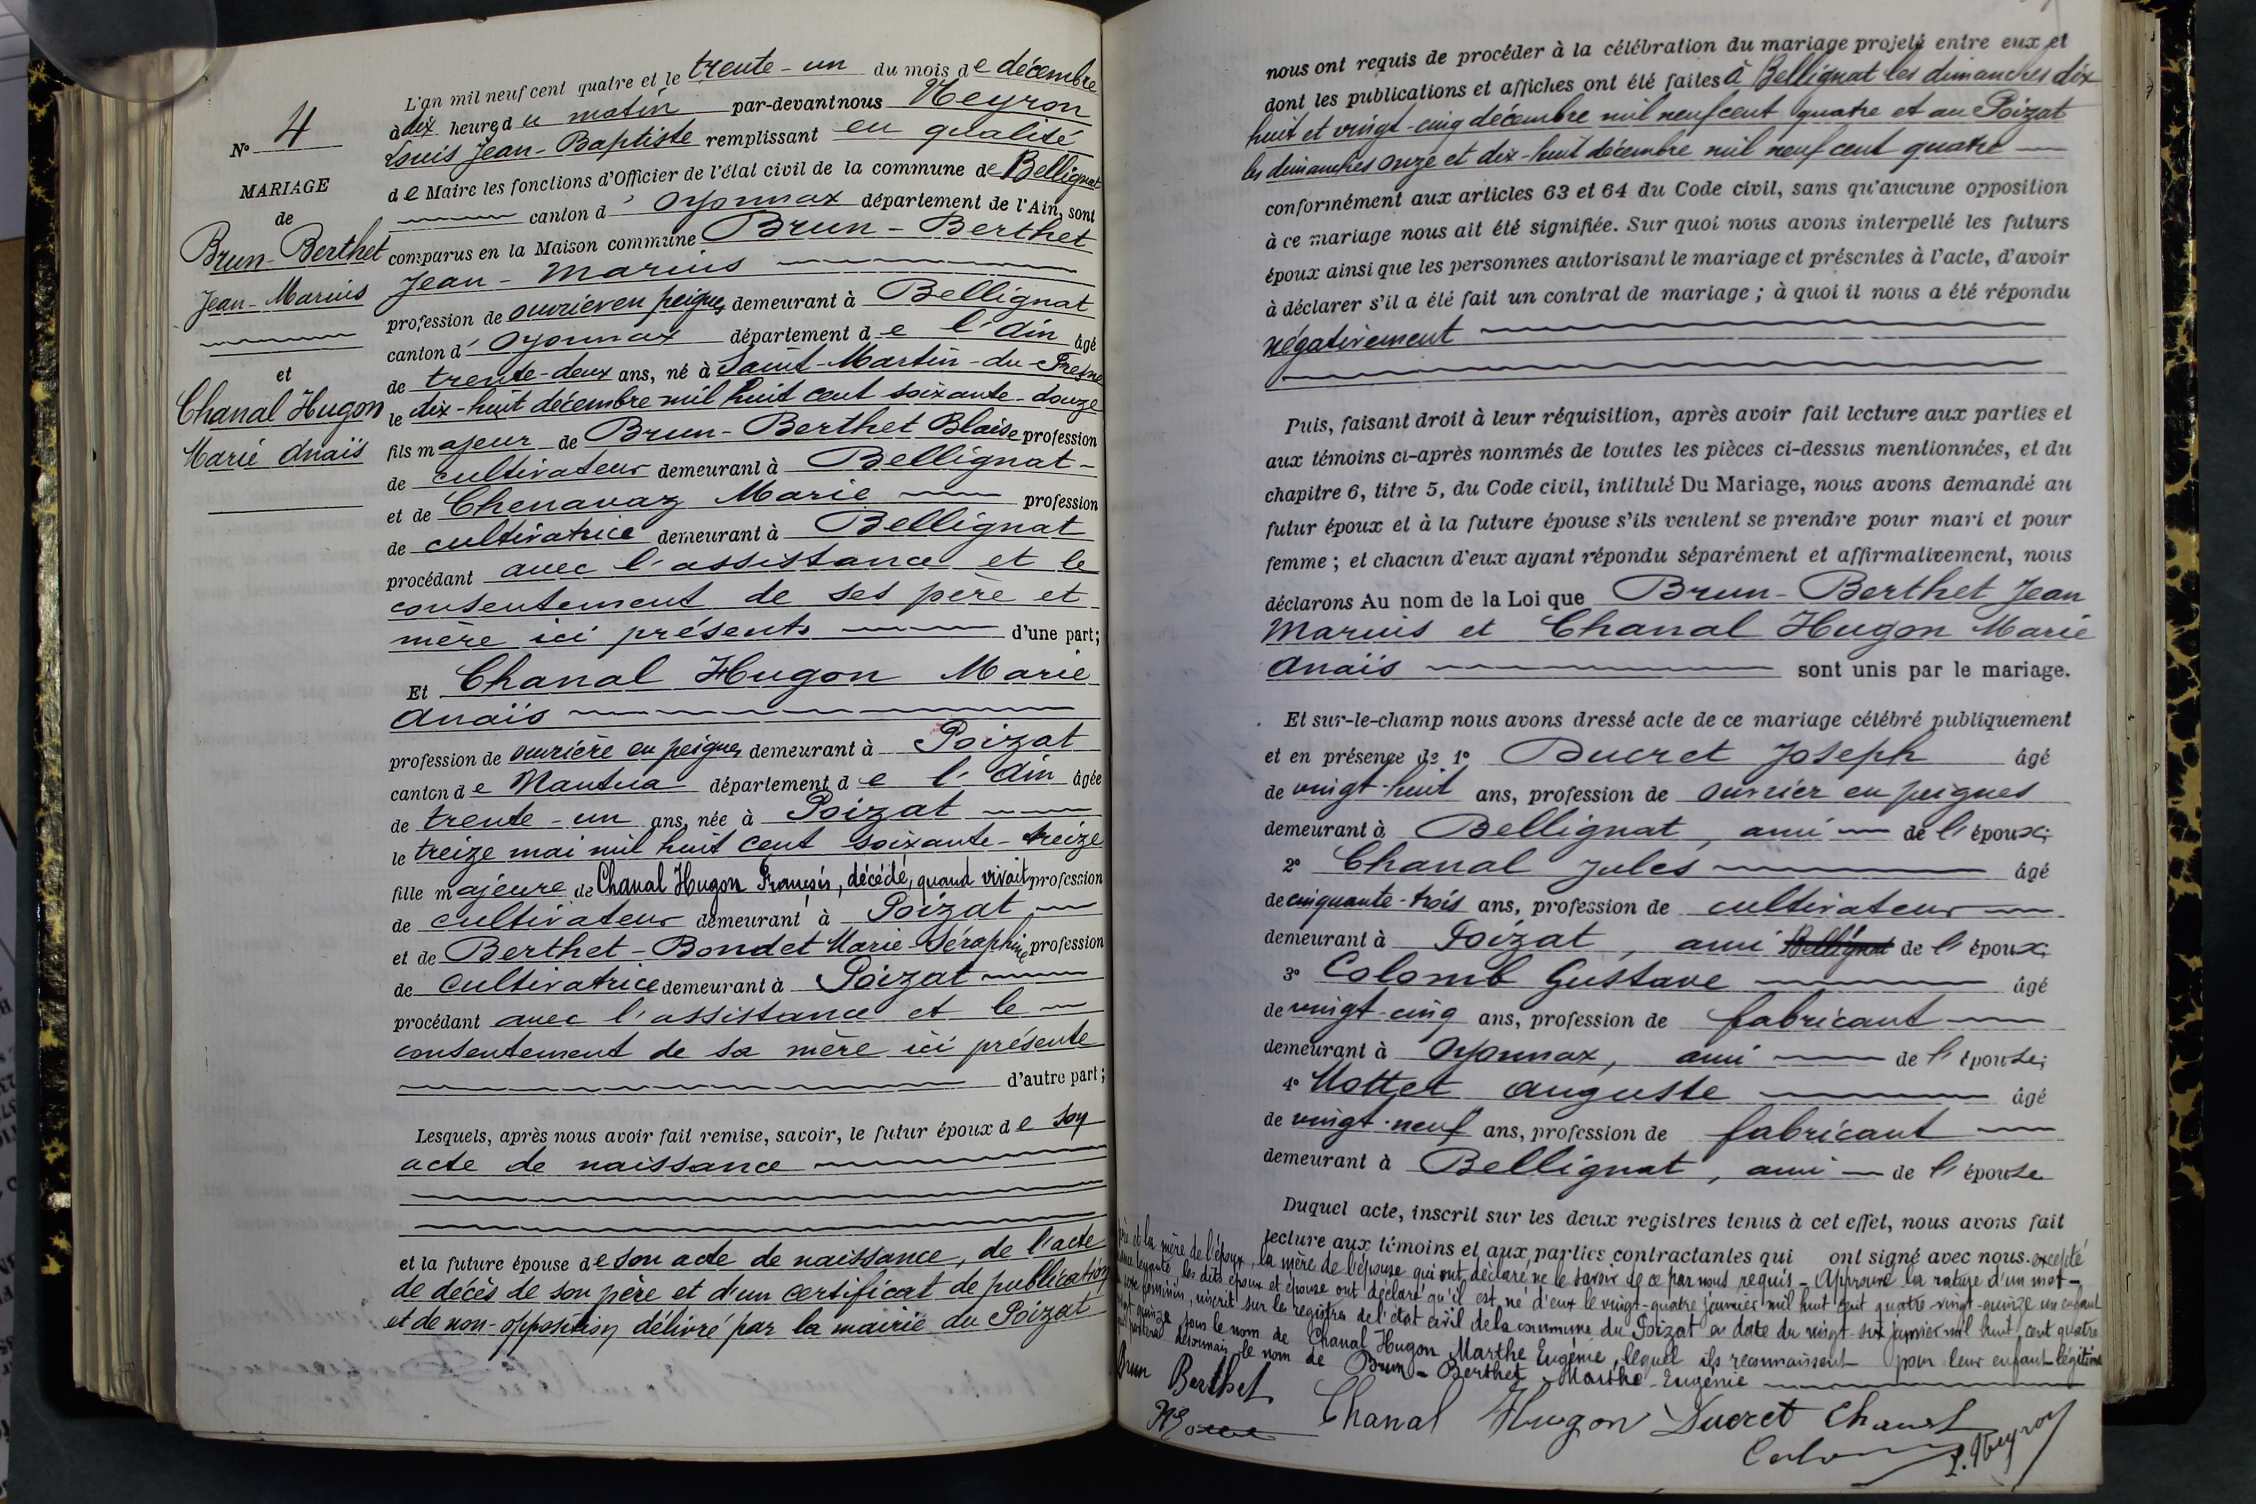 N° 4
MARIAGE
de
Brun-Berthet
Jean-Marius
et
Chanal Hugon
Marie Anaïs
L'an mil neuf cent quatre et le trente-un du mois de décembre
à dix heures du matin par-devant nous Neyron
Louis Jean-Baptiste remplissant en qualité
de Maire les fonctions d'Officier de l'état civil de la commune de Bellignat
canton d'Oyonnax département de l'Ain, sont
comparus en la Maison commune Brun-Berthet
Jean-Marius
profession de ouvrier en peignes demeurant à Bellignat
canton d'Oyonnax département de l'Ain âgé
de trente-deux ans, né à Saint-Martin-du-Fresne
le dix-huit décembre mil huit cent soixante-douze
fils majeur de Brun-Berthet Blaise profession
de cultivateur demeurant à Bellignat
et de Chenavaz Marie profession
de cultivatrice demeurant à Bellignat
procédant avec l'assistance et le
consentement de ses père et
mère ici présents d'une part;
Et Chanal Hugon Marie
Anaïs
profession de ouvrière en peignes demeurant à Poizat
canton de Nantua département de l'Ain âgée
de trente-un ans, née à Poizat
le treize mai mil huit cent soixante-treize
fille majeure de Chanal Hugon François, décédé, quand vivait profession
de cultivateur demeurant à Poizat
et de Berthet-Bondet Marie-Séraphine profession
de cultivatrice demeurant à Poizat
procédant avec l'assistance et le
consentement de sa mère ici présente
d'autre part;
Lesquels, après nous avoir fait remise, savoir, le futur époux de son
acte de naissance
et la future épouse de son acte de naissance, de l'acte
de décès de son père et d'un certificat de publication
et de non-opposition délivré par la mairie du Poizat
nous ont requis de procéder à la célébration du mariage projeté entre eux et
dont les publications et affiches ont été faites à Bellignat les dimanches dix
huit et vingt-cinq décembre mil neuf cent quatre et au Poizat
les dimanches onze et dix-huit décembre mil neuf cent quatre
conformément aux articles 63 et 64 du Code civil, sans qu'aucune opposition
à ce mariage nous ait été signifiée. Sur quoi nous avons interpellé les futurs
époux ainsi que les personnes autorisant le mariage et présentes à l'acte, d'avoir
à déclarer s'il a été fait un contrat de mariage; à quoi il nous a été répondu
négativement
Puis, faisant droit à leur réquisition, après avoir fait lecture aux parties et
aux témoins ci-après nommés de toutes les pièces ci-dessus mentionnées, et du
chapitre 6, titre 5, du Code civil, intitulé Du Mariage, nous avons demandé au
futur époux et à la future épouse s'ils veulent se prendre pour mari et pour
femme; et chacun d'eux ayant répondu séparément et affirmativement, nous
déclarons Au nom de la Loi que Brun-Berthet Jean
Marius et Chanal Hugon Marie
Anaïs sont unis par le mariage.
Et sur-le-champ nous avons dressé acte de ce mariage célébré publiquement
et en présence de 1° Ducret Joseph âgé
de vingt-huit ans, profession de ouvrier en peignes
demeurant à Bellignat, ami de l'époux;
2° Chanal Jules âgé
de cinquante-trois ans, profession de cultivateur
demeurant à Poizat, ami Bellignat de l'époux;
3° Colomb Gustave âgé
de vingt-cinq ans, profession de fabricant
demeurant à Oyonnax, ami de l'épouse;
4° Mottet Auguste âgé
de vingt-neuf ans, profession de fabricant
demeurant à Bellignat, ami de l'épouse
Duquel acte, inscrit sur les deux registres tenus à cet effet, nous avons fait
lecture aux témoins et aux parties contractantes qui ont signé avec nous. excepté
père et la mère de l'époux, la mère de l'épouse qui ont déclaré ne le savoir de ce par nous requis - Approuvé la rature d'un mot -
les dits époux et épouse ont déclaré qu'il est né d'eux le vingt-quatre janvier mil huit cent quatre-vingt-quinze un enfant
sexe féminin, inscrit sur le registre de l'état civil de la commune du Poizat a date du vingt-six janvier mil huit cent quatre
vingt quinze sous le nom de Chanal Hugon Marthe Eugénie, lequel ils reconnaissent pour leur enfant légitime
qui portera désormais le nom de Brun-Berthet Marthe-Eugénie
Brun Berthet
Chanal Hugon Ducret Chanal
L. Neyron